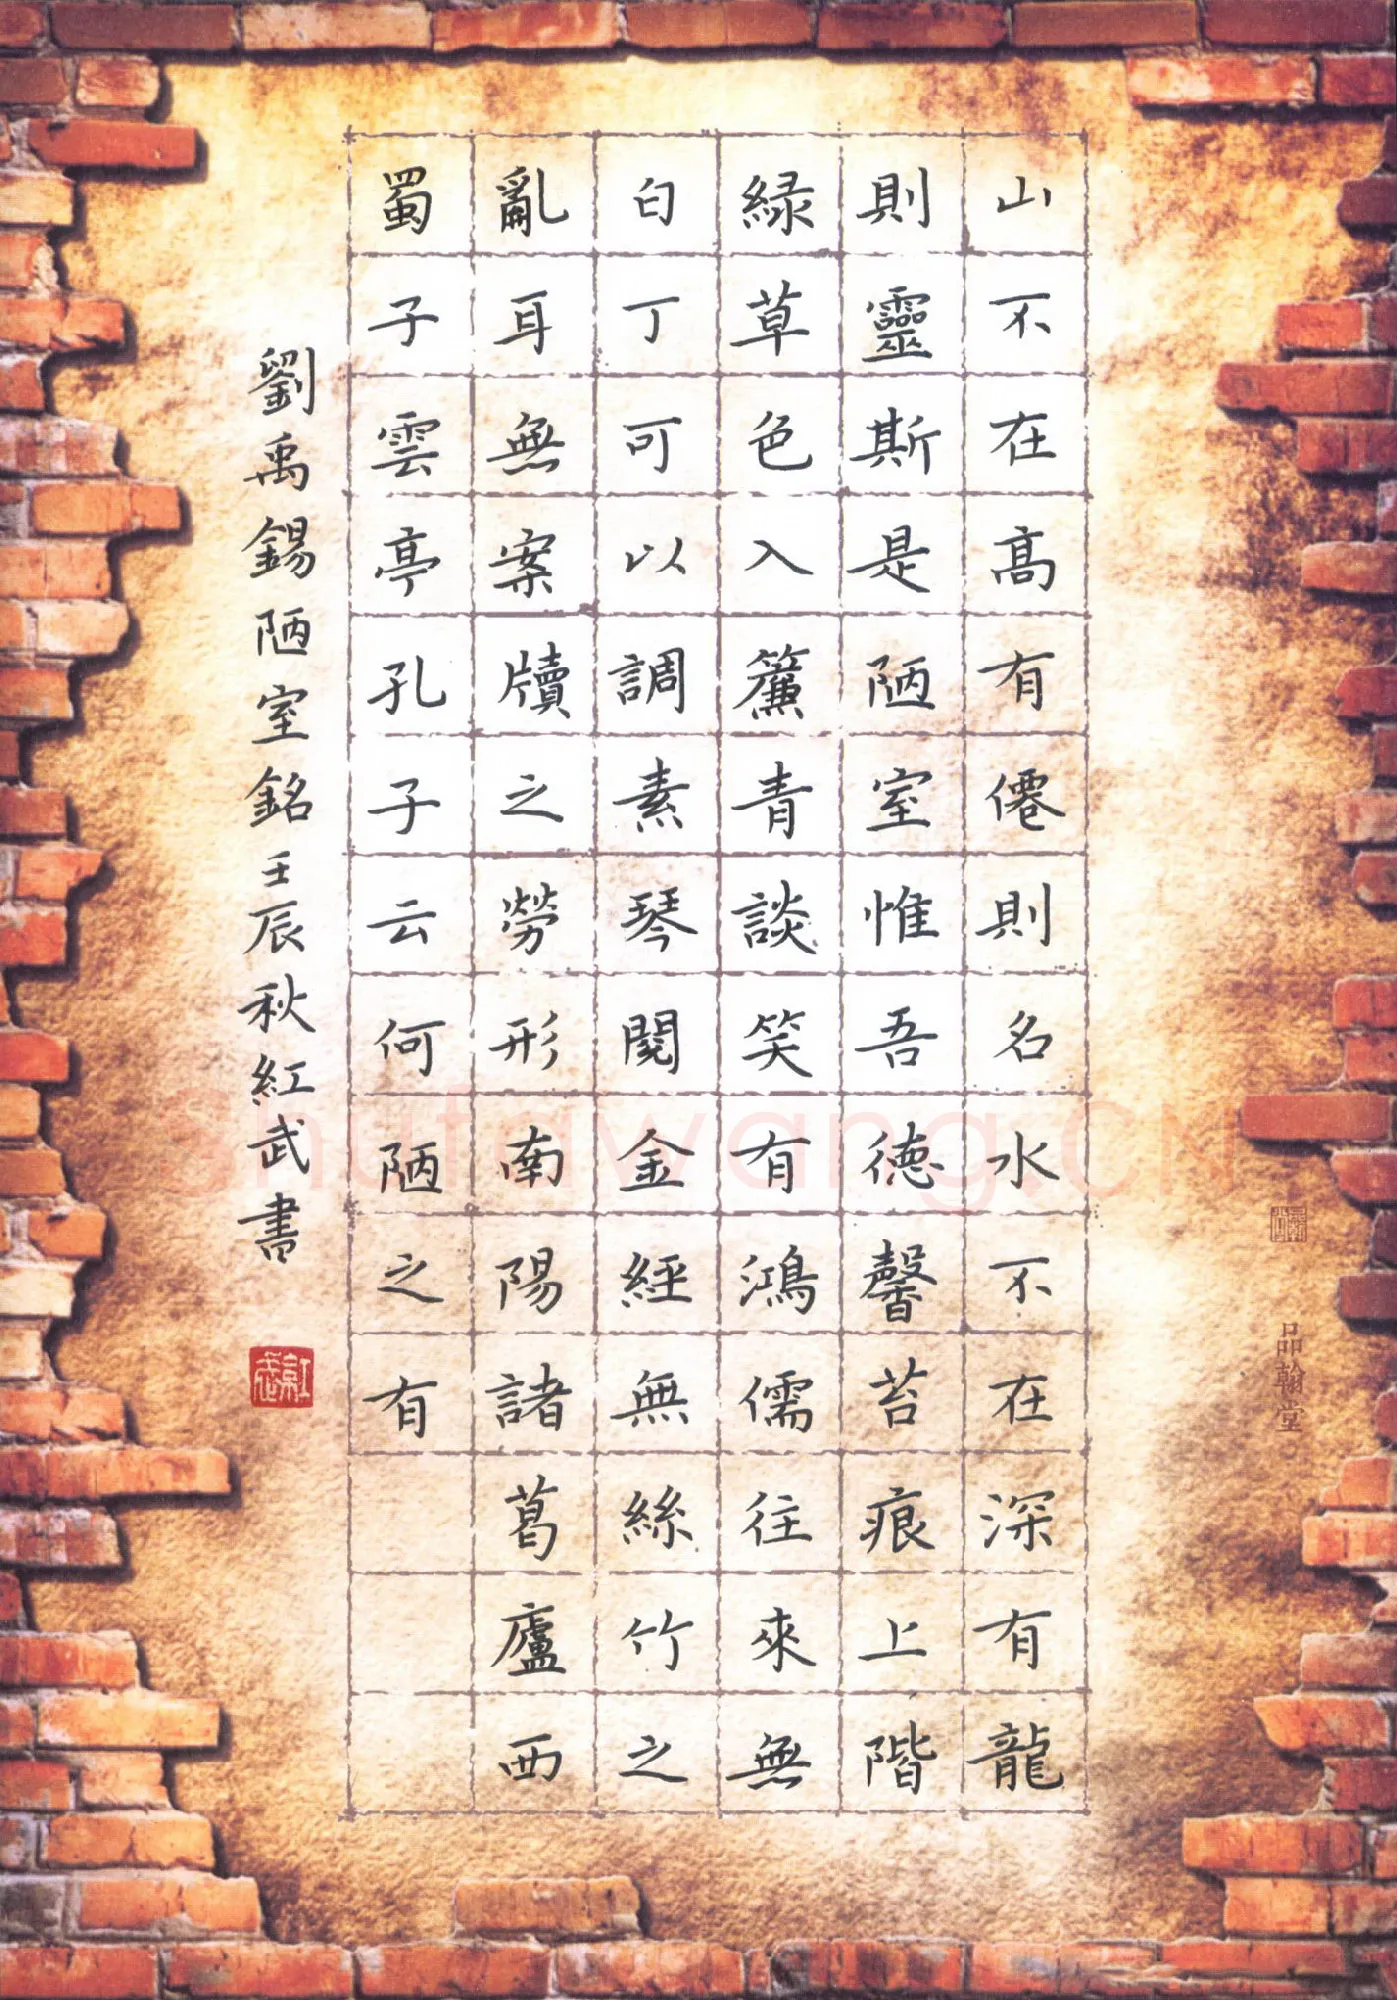 山不在髙有僊則名水不在深有龍
則靈斯是陋室惟吾徳馨苔痕上階
緑草色入簾青談笑有鴻儒往來無
白丁可以調素琴閱金經無絲竹之
亂耳無案牘之勞形南陽諸葛廬西
蜀子雲亭孔子云何陋之有
劉禹錫陋室銘壬辰秋紅武書
紅武
品翰堂
shufawang.CN